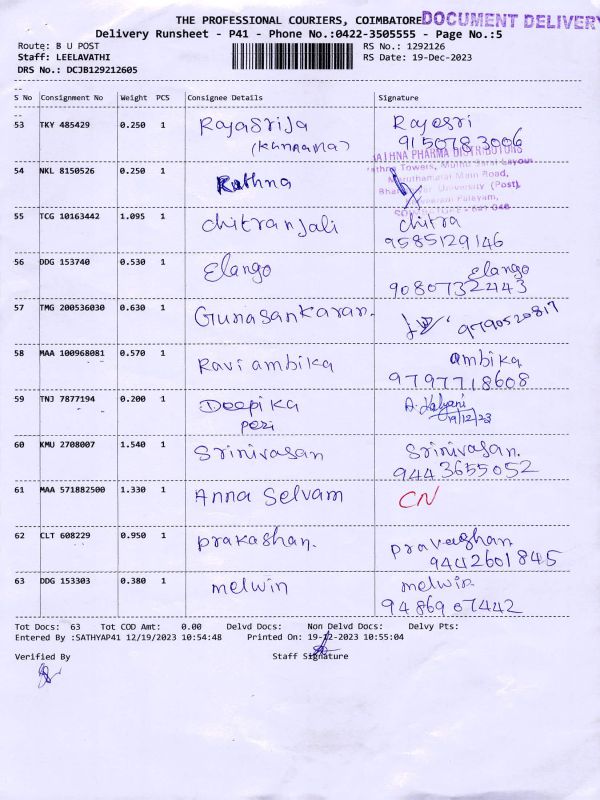 THE PROFESSIONAL COURIERS, COIMBATORE DOCUMENT DELIVERY
Delivery Runsheet - P41 - Phone No.:0422-3505555 - Page No.:5
Route: B U POST RS No.: 1292126
Staff: LEELAVATHI RS Date: 19-Dec-2023
DRS No.: DCJB129212605
S No Consignment No Weight PCS Consignee Details Signature
53 TKY 485429 0.250 1 Rajasrija Rajesri
(Kannama) 9150783006
54 NKL 8150526 0.250 1 Rathna
RATHNA PHARMA DISTRIBUTORS
Maruthamalai Main Road,
University (Post),
55 TCG 10163442 1.095 1 Chitranjali Chitra
9585129146
56 DDG 153740 0.530 1 Elango Elango
9080732443
57 TMG 200536030 0.630 1 Gunasankaran. 9790520817
58 MAA 100968081 0.570 1 Ravi ambika ambika
9797718608
59 TNJ 7877194 0.200 1 Deepika
19/12/23
60 KMU 2708007 1.540 1 Srinivasan Srinivasan.
9443655052
61 MAA 571882500 1.330 1 Anna Selvam CN
62 CLT 608229 0.950 1 prakashan.
9442601845
63 DDG 153303 0.380 1 melwin melwin
9486907442
Tot Docs: 63 Tot COD Amt: 0.00 Delvd Docs: Non Delvd Docs: Delvy Pts:
Entered By :SATHYAP41 12/19/2023 10:54:48 Printed On: 19-12-2023 10:55:04
Verified By Staff Signature